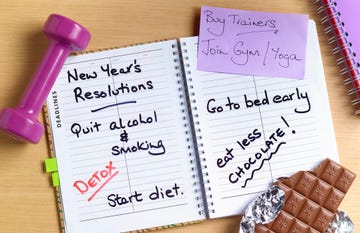 DEADLINES
New Year's
Resolutions
Quit alcohol
&
Smoking
DETOX
Start diet.
Buy Trainers.
Join Gym/Yoga
Go to bed early
eat less
CHOCOLATE!